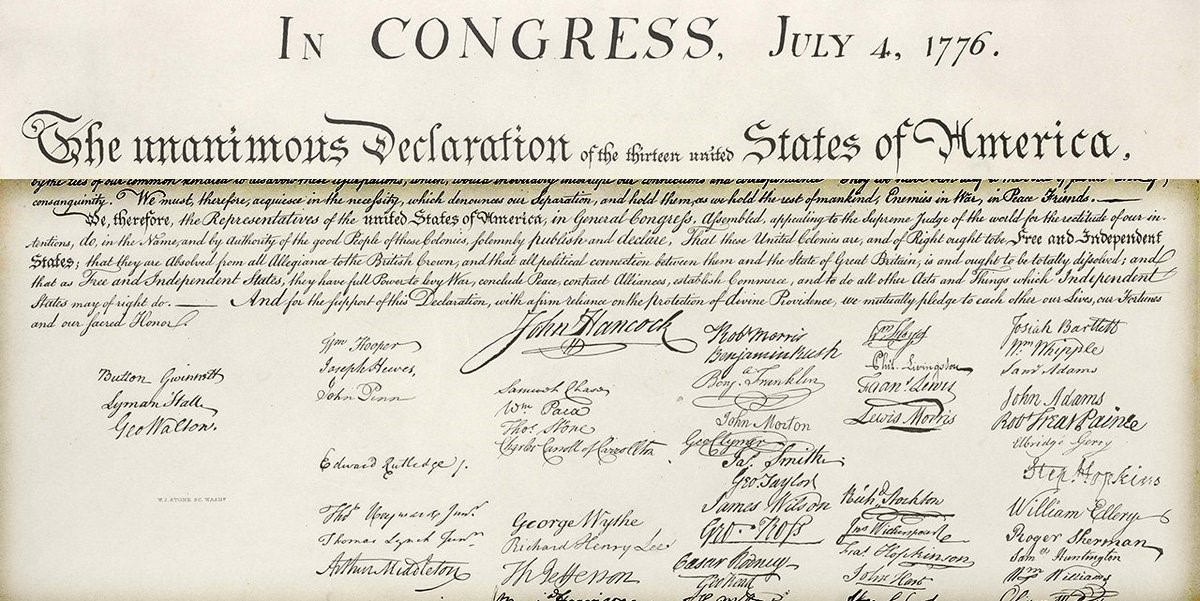 IN CONGRESS, JULY 4, 1776.
The unanimous Declaration of the thirteen united States of America,
by the ties of our common kindred to disavow these usurpations, which, would inevitably interrupt our connections and correspondence.
consanguinity. We must, therefore, acquiesce in the necessity, which denounces our Separation, and hold them, as we hold the rest of mankind, Enemies in War, in Peace Friends. —
We, therefore, the Representatives of the united States of America, in General Congress, Assembled, appealing to the Supreme Judge of the world for the rectitude of our in-
tentions, do, in the Name, and by Authority of the good People of these Colonies, solemnly publish and declare, That these United Colonies are, and of Right ought to be Free and Independent
States; that they are Absolved from all Allegiance to the British Crown, and that all political connection between them and the State of Great Britain, is and ought to be totally dissolved; and
that as Free and Independent States, they have full Power to levy War, conclude Peace, contract Alliances, establish Commerce, and to do all other Acts and Things which Independent
States may of right do. — And for the support of this Declaration, with a firm reliance on the protection of divine Providence, we mutually pledge to each other our Lives, our Fortunes
and our sacred Honor.
Button Gwinnett
Lyman Hall
Geo Walton.
W.J. STONE SC. WASHN
Wm Hooper
Joseph Hewes,
John Penn
Edward Rutledge /.
Thos Heyward Junr.
Thomas Lynch Junr.
Arthur Middleton
John Hancock
Samuel Chase
Wm Paca
Thos Stone
Charles Carroll of Carrollton
George Wythe
Richard Henry Lee
Th Jefferson
Robt Morris
Benjamin Rush
Benja. Franklin
John Morton
Geo Clymer
Jas. Smith
Geo. Taylor
James Wilson
Geo. Ross
Caesar Rodney
Geo Read
Wm Floyd
Phil. Livingston
Frans. Lewis
Lewis Morris
Richd Stockton
Jno Witherspoon
Fras. Hopkinson
John Hart
Josiah Bartlett
Wm. Whipple
Saml Adams
John Adams
Robt Treat Paine
Elbridge Gerry
Step. Hopkins
William Ellery
Roger Sherman
Samel Huntington
Wm Williams